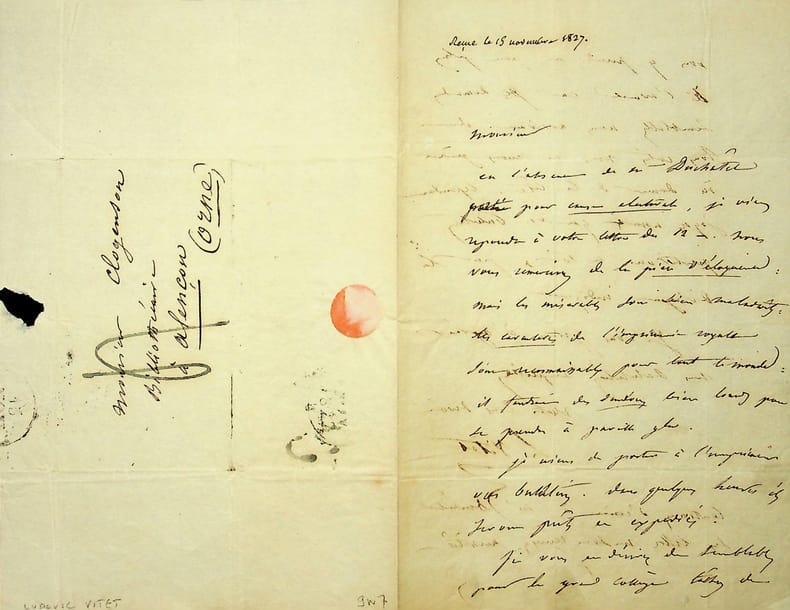 Monsieur Clogenson
Bibliothécaire
à alençon
(Orne)
LUDOVIC VITET
9w7
le 15 novembre 1827.
Monsieur
en l'absence de m Duchâtel
pour cause électorale, je viens
répondre à votre lettre du 12 . nous
vous remercions de la pièce d'éloquence :
mais les misérables sont bien maladroits :
les caractères de l'imprimerie royale
sont reconnaissables pour tout le monde :
il faudrait des bien lourds pour
se prendre à pareille glu .
je viens de porter à l'imprimeur
vos bulletins . dans quelques heures ils
seront prêts et expédiés .
Si vous en désirez de semblables
pour le grand collège de